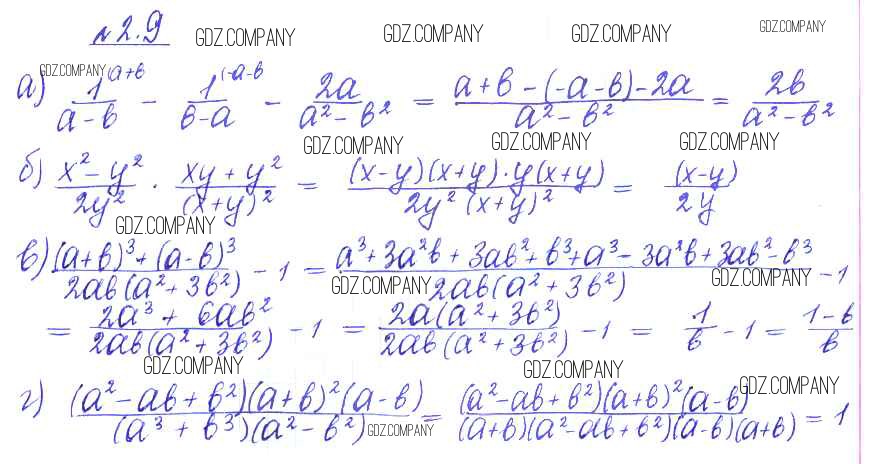 №2.9 GDZ.COMPANY GDZ.COMPANY GDZ.COMPANY GDZ.COMPANY
GDZ.COMPANY
а) 1^(a+b/(a-b) - 1^(-a-b/(b-a) - 2a/(a²-b²) = (a+b-(-a-b)-2a)/(a²-b²) = 2b/(a²-b²)
GDZ.COMPANY GDZ.COMPANY GDZ.COMPANY
б) (x²-y²)/(2y²) · (xy+y²)/((x+y)²) = ((x-y)(x+y)·y(x+y))/(2y²(x+y)²) = (x-y)/(2y)
GDZ.COMPANY
в) ((a+b)³+(a-b)³)/(2ab(a²+3b²)) - 1 = (a³+3a²b+3ab²+b³+a³-3a²b+3ab²-b³)/(2ab(a²+3b²)) - 1
GDZ.COMPANY GDZ.COMPANY
= (2a³+6ab²)/(2ab(a²+3b²)) - 1 = (2a(a²+3b²))/(2ab(a²+3b²)) - 1 = 1/b - 1 = (1-b)/b
GDZ.COMPANY GDZ.COMPANY GDZ.COMPANY
г) ((a²-ab+b²)(a+b)²(a-b))/((a³+b³)(a²-b²)) = ((a²-ab+b²)(a+b)²(a-b))/((a+b)(a²-ab+b²)(a-b)(a+b)) = 1
GDZ.COMPANY